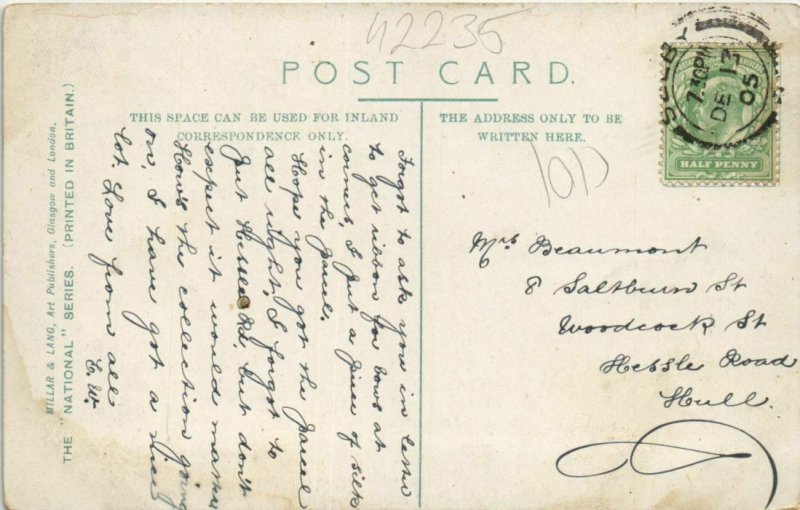 42235
POST CARD.
THIS SPACE CAN BE USED FOR INLAND
CORRESPONDENCE ONLY.
THE ADDRESS ONLY TO BE
WRITTEN HERE.
Forgot to ask you in letter
to get ribbon for bows at
corners, I put a piece of silk
in the parcel.
Hope you got the parcel
all right, I forgot to
put Hessle Rd, but don't
expect it would matter
How's the collection going
on, I have got a nice
lot. Love from all
E. W.
Mrs Beaumont
8 Saltburn St
Woodcock St
Hessle Road
Hull.
SELBY
7.30PM
DE 12
05
HALF PENNY
MILLAR & LANG, Art Publishers, Glasgow and London.
THE "NATIONAL" SERIES. (PRINTED IN BRITAIN.)